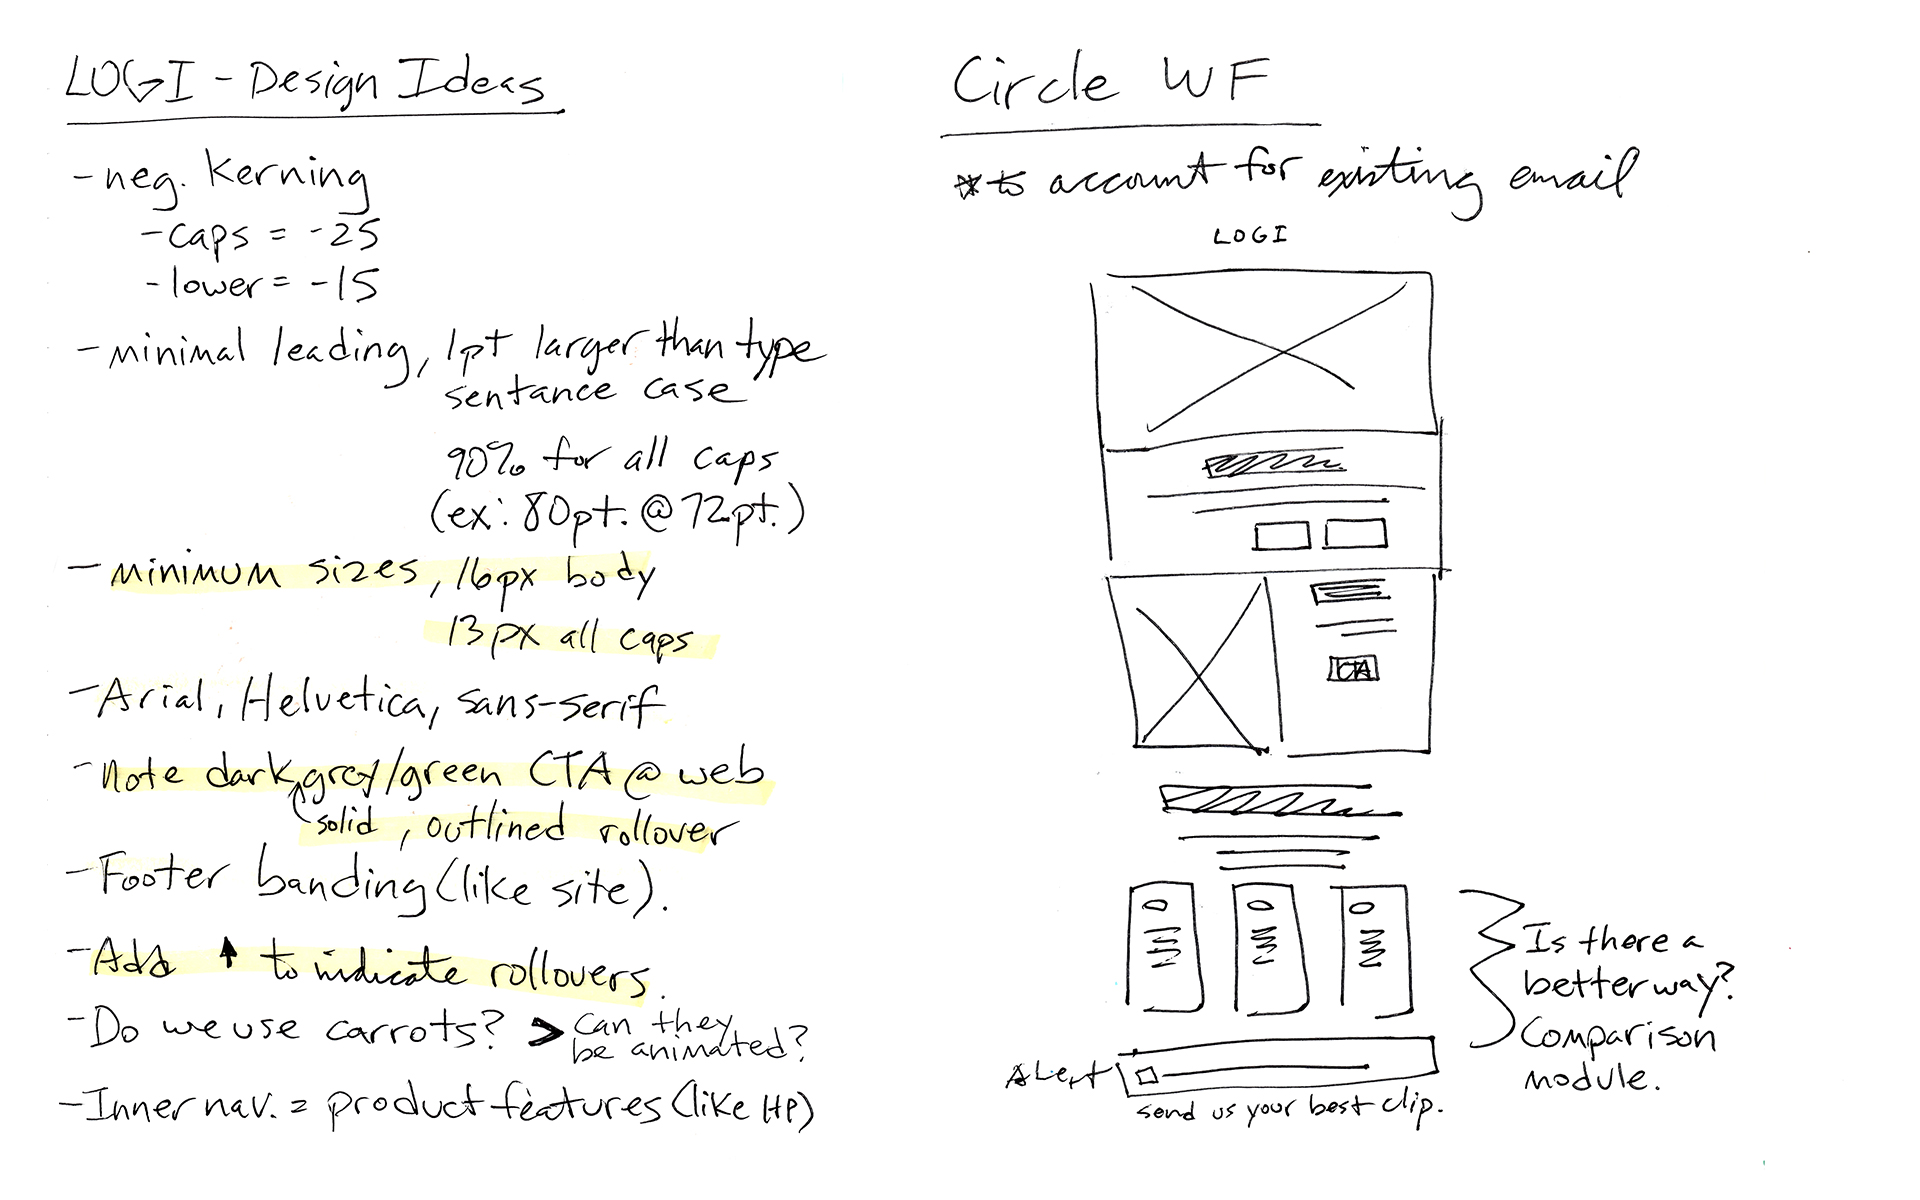 LOGI - Design Ideas
- neg. kerning
- caps = -25
- lower = -15
- minimal leading, 1pt larger than type
sentance case
90% for all caps
(ex: 80pt. @ 72pt.)
- minimum sizes, 16px body
13px all caps
- Arial, Helvetica, sans-serif
- Note dark grey/green CTA @ web
solid, outlined rollover
- Footer banding (like site).
- Add ↑ to indicate rollovers.
- Do we use carrots? > Can they
be animated?
- Inner nav. = product features (like HP)
Circle WF
* to account for existing email
LOGI
CTA
Is there a
better way?
Comparison
module.
Alert
send us your best clip.